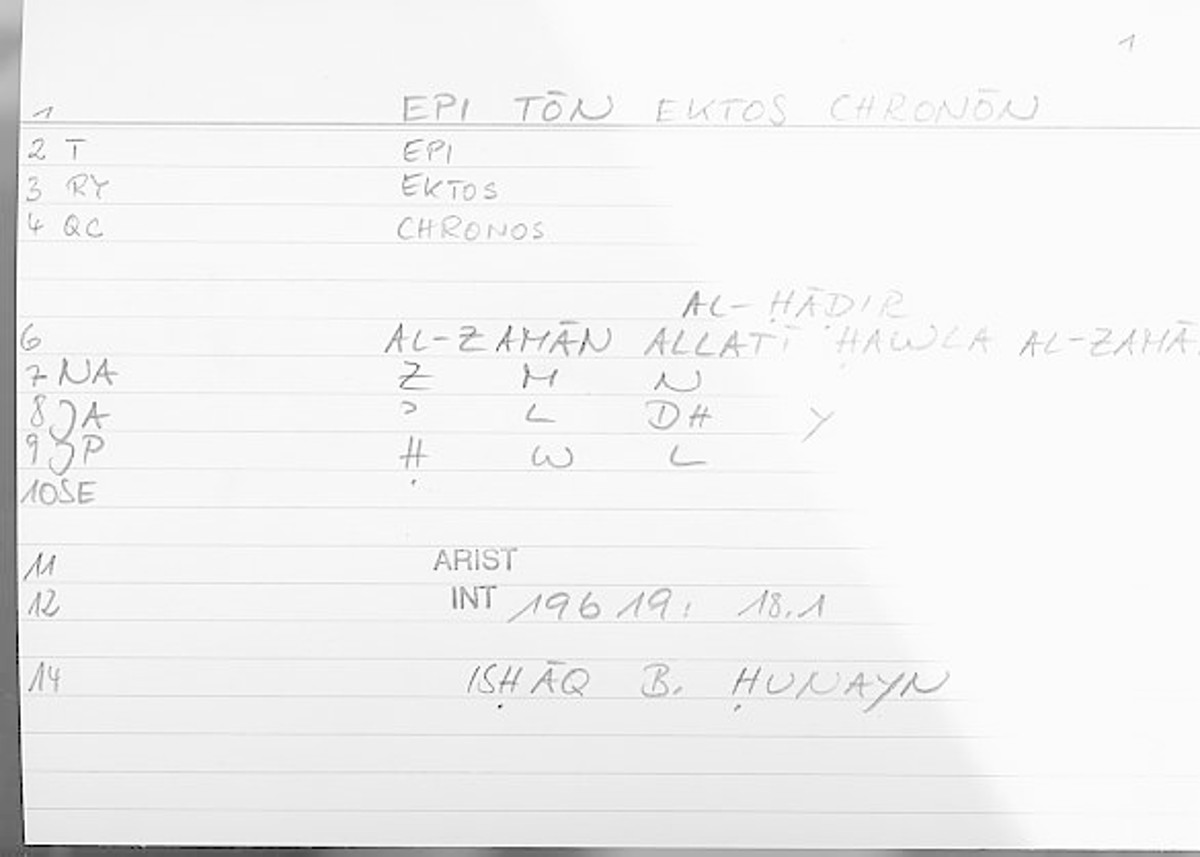 1
1 EPI TŌN EKTOS CHRONŌN
2 T EPI
3 RY EKTOS
4 QC CHRONOS
AL-ḤĀḌIR
6 AL-ZAMĀN ALLATĪ ḤAWLA AL-ZAMĀ
7 NA Z M N
8 JA ʾ L DH Y
9 JP Ḥ W L
10 SE
11 ARIST
12 INT 196 19: 18.1
14 ISḤĀQ B. ḤUNAYN